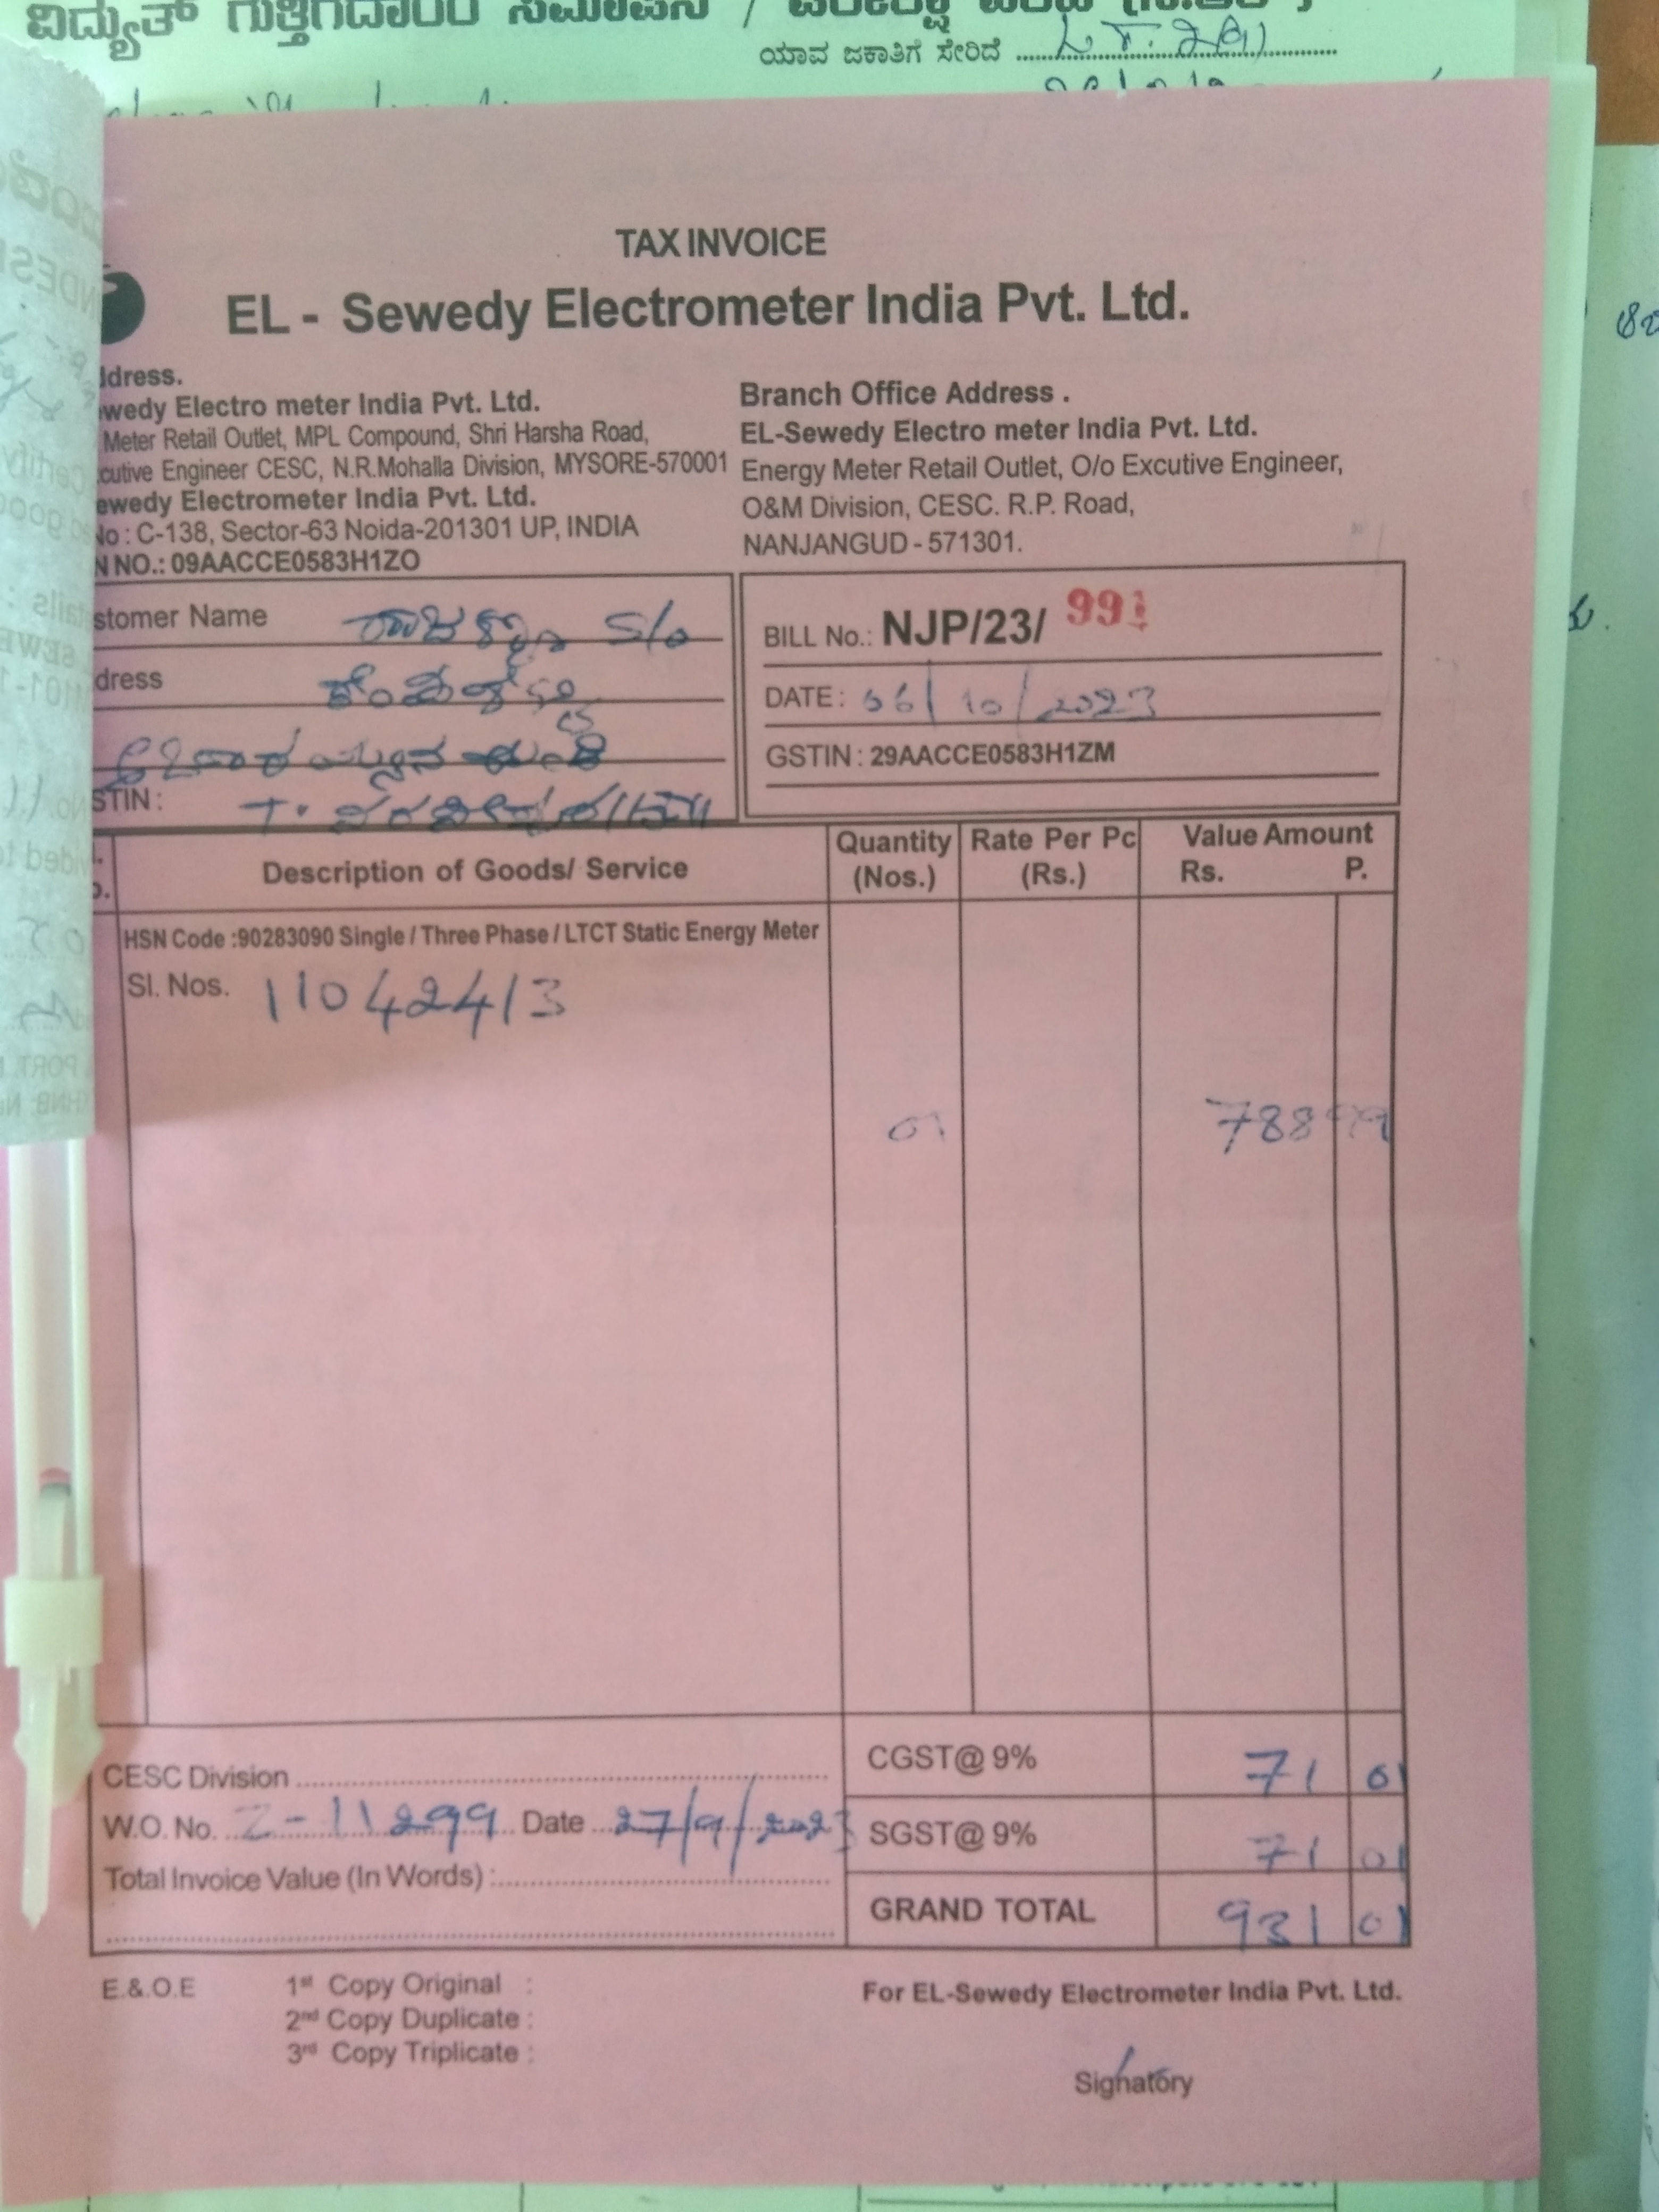 ಯಾವ ಜಕಾತಿಗೆ ಸೇರಿದೆ
TAX INVOICE
EL - Sewedy Electrometer India Pvt. Ltd.
ddress.
wedy Electro meter India Pvt. Ltd.
Meter Retail Outlet, MPL Compound, Shri Harsha Road,
cutive Engineer CESC, N.R.Mohalla Division, MYSORE-570001
ewedy Electrometer India Pvt. Ltd.
No : C-138, Sector-63 Noida-201301 UP, INDIA
N NO.: 09AACCE0583H1ZO
Branch Office Address .
EL-Sewedy Electro meter India Pvt. Ltd.
Energy Meter Retail Outlet, O/o Excutive Engineer,
O&M Division, CESC. R.P. Road,
NANJANGUD - 571301.
stomer Name S/o
dress
STIN :
BILL No.: NJP/23/
DATE : 06/10/2023
GSTIN : 29AACCE0583H1ZM
Description of Goods/ Service Quantity (Nos.) Rate Per Pc (Rs.) Value Amount Rs. P.
HSN Code :90283090 Single / Three Phase / LTCT Static Energy Meter
Sl. Nos. 11042413
01 788 99
CESC Division
W.O. No. Z-11299 Date 27/9/2023
Total Invoice Value (In Words) :
CGST@ 9% 71 01
SGST@ 9% 71 01
GRAND TOTAL 931 01
E.&.O.E
1st Copy Original :
2nd Copy Duplicate :
3rd Copy Triplicate :
For EL-Sewedy Electrometer India Pvt. Ltd.
Signatory